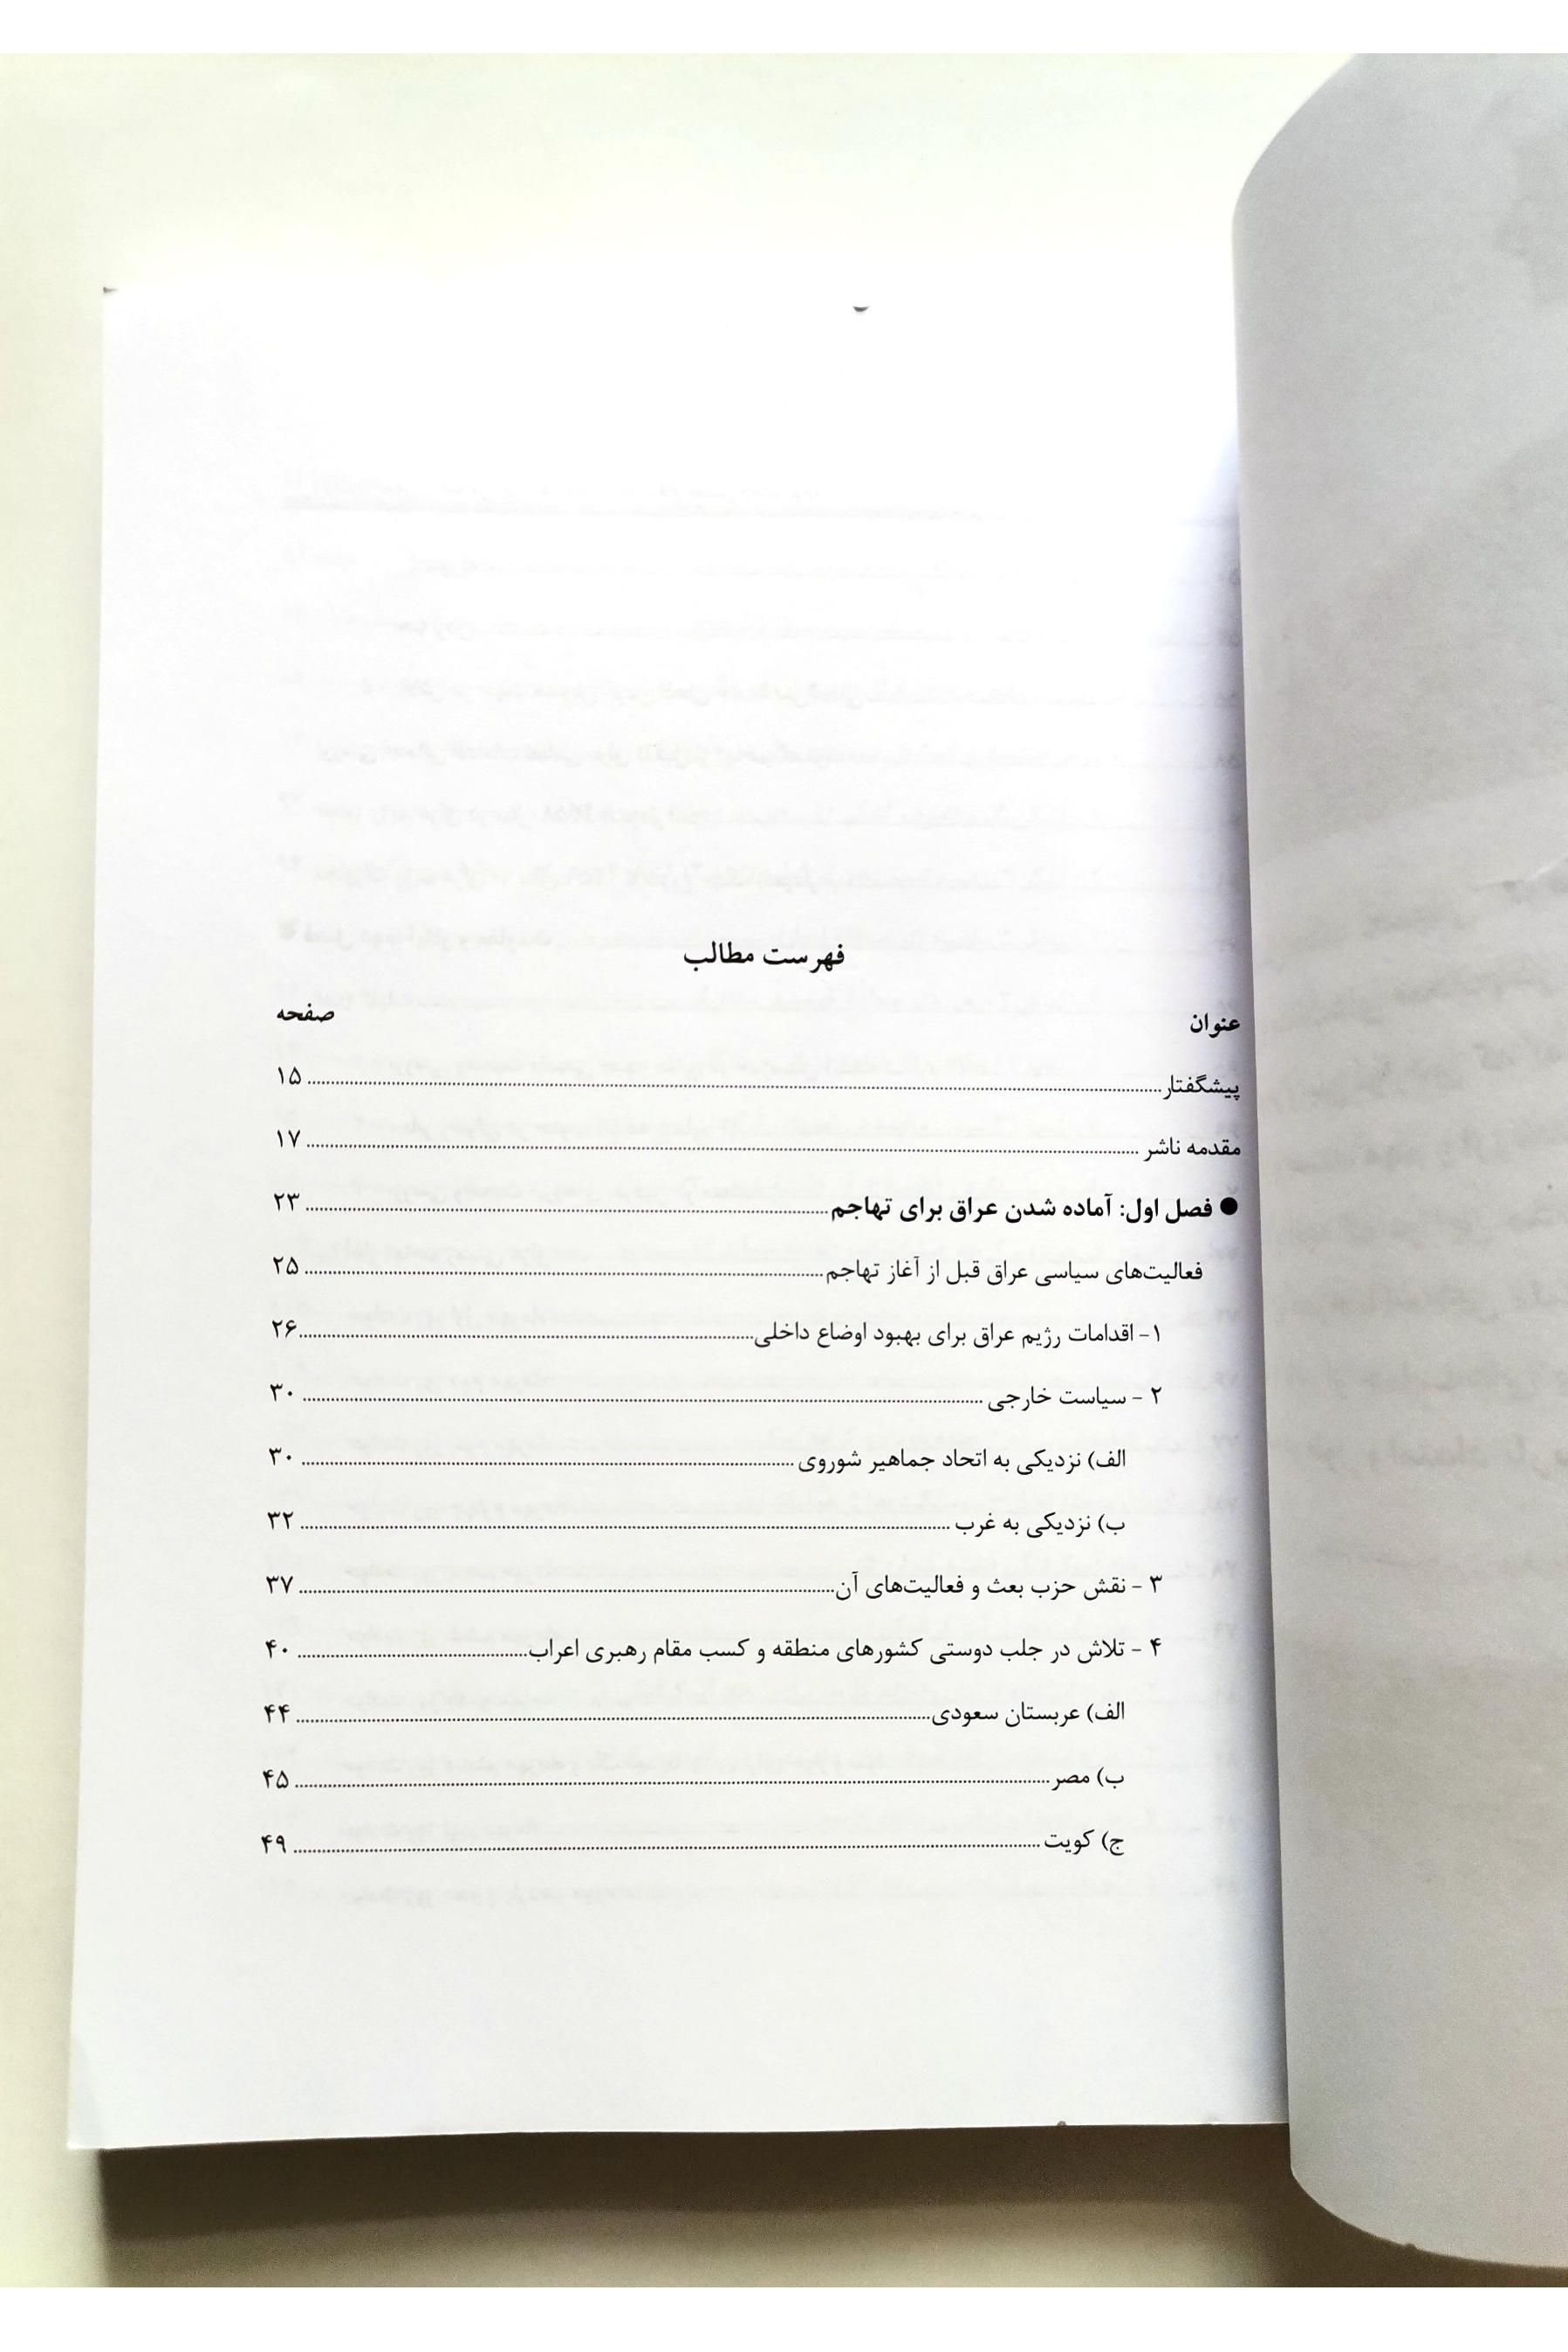 فهرست مطالب
عنوان صفحه
پیشگفتار ........ ۱۵
مقدمه ناشر ........ ۱۷
● فصل اول: آماده شدن عراق برای تهاجم ........ ۲۳
فعالیت‌های سیاسی عراق قبل از آغاز تهاجم ........ ۲۵
۱- اقدامات رژیم عراق برای بهبود اوضاع داخلی ........ ۲۶
۲ - سیاست خارجی ........ ۳۰
الف) نزدیکی به اتحاد جماهیر شوروی ........ ۳۰
ب) نزدیکی به غرب ........ ۳۲
۳ - نقش حزب بعث و فعالیت‌های آن ........ ۳۷
۴ - تلاش در جلب دوستی کشورهای منطقه و کسب مقام رهبری اعراب ........ ۴۰
الف) عربستان سعودی ........ ۴۴
ب) مصر ........ ۴۵
ج) کویت ........ ۴۹